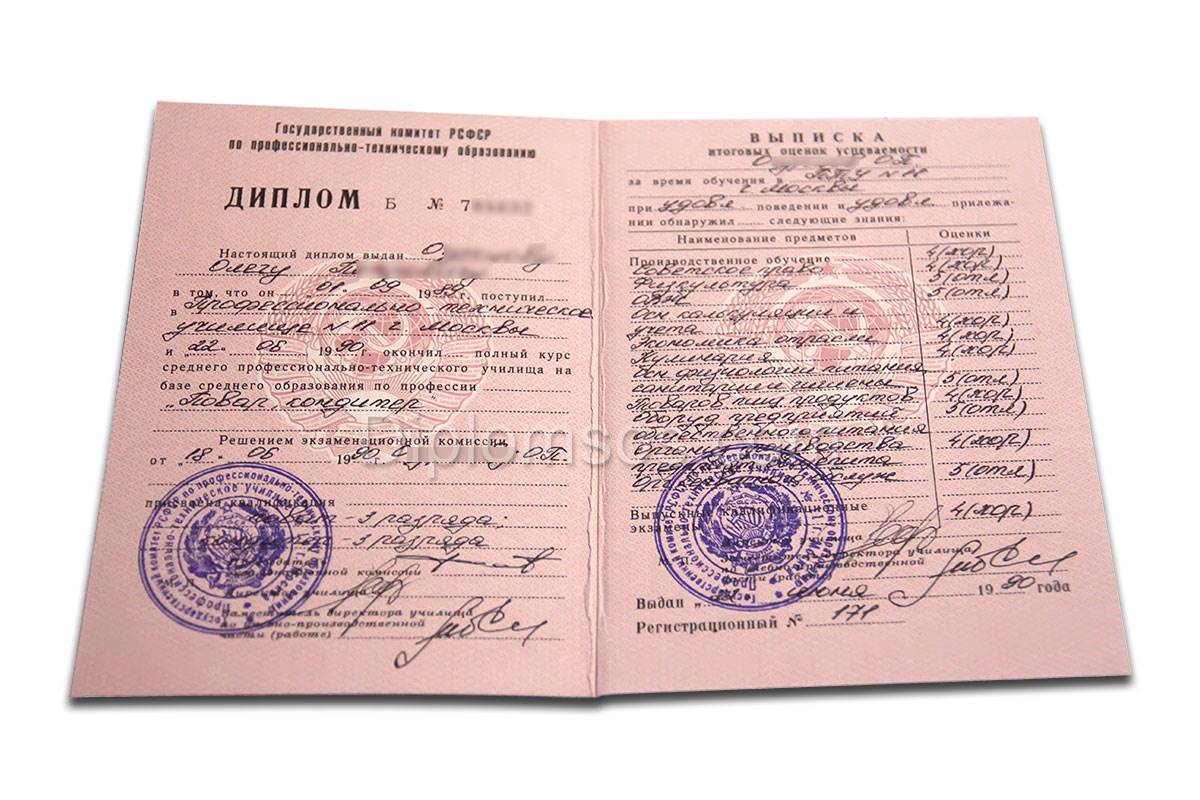 Государственный комитет РСФСР
по профессионально-техническому образованию
ДИПЛОМ Б № 7
Настоящий диплом выдан О
Олегу П
в том, что он 01 09 19 г. поступил
в Профессионально-техническое
училище N 11 г. Москвы
и „22" 06 1990 г. окончил полный курс
среднего профессионально-технического училища на
базе среднего образования по профессии
„Повар, кондитер"
Решением экзаменационной комиссии
от „18" 06 1990 О.П.
присвоена квалификация
повар - 3 разряда;
кондитер - 3 разряда
комиссии
училища
Заместитель директора училища
по учебно-производственной
части (работе)
ВЫПИСКА
итоговых оценок успеваемости
О О.П.
за время обучения в ПТУ N 11
г. Москвы
при удовл поведении и удовл прилежа-
нии обнаружил следующие знания:
Наименование предметов Оценки
Производственное обучение 4 (хор.)
Советское право 4 (хор.)
Физкультура 5 (отл.)
5 (отл.)
Осн калькуляции и
учета 4 (хор.)
Экономика отрасли 4 (хор.)
Кулинария 4 (хор.)
Осн физиологии питания
санитарии и гигиены 5 (отл.)
Товаров пищ продуктов 4 (хор.)
Оборуд предприятий 5 (отл.)
общественного питания
Организ производства 4 (хор.)
5 (отл.)
Выпускные квалификационные
экзамены 4 (хор.)
директора училища
производственной
Выдан „22" июня 1990 года
Регистрационный № 171
Diplomsd